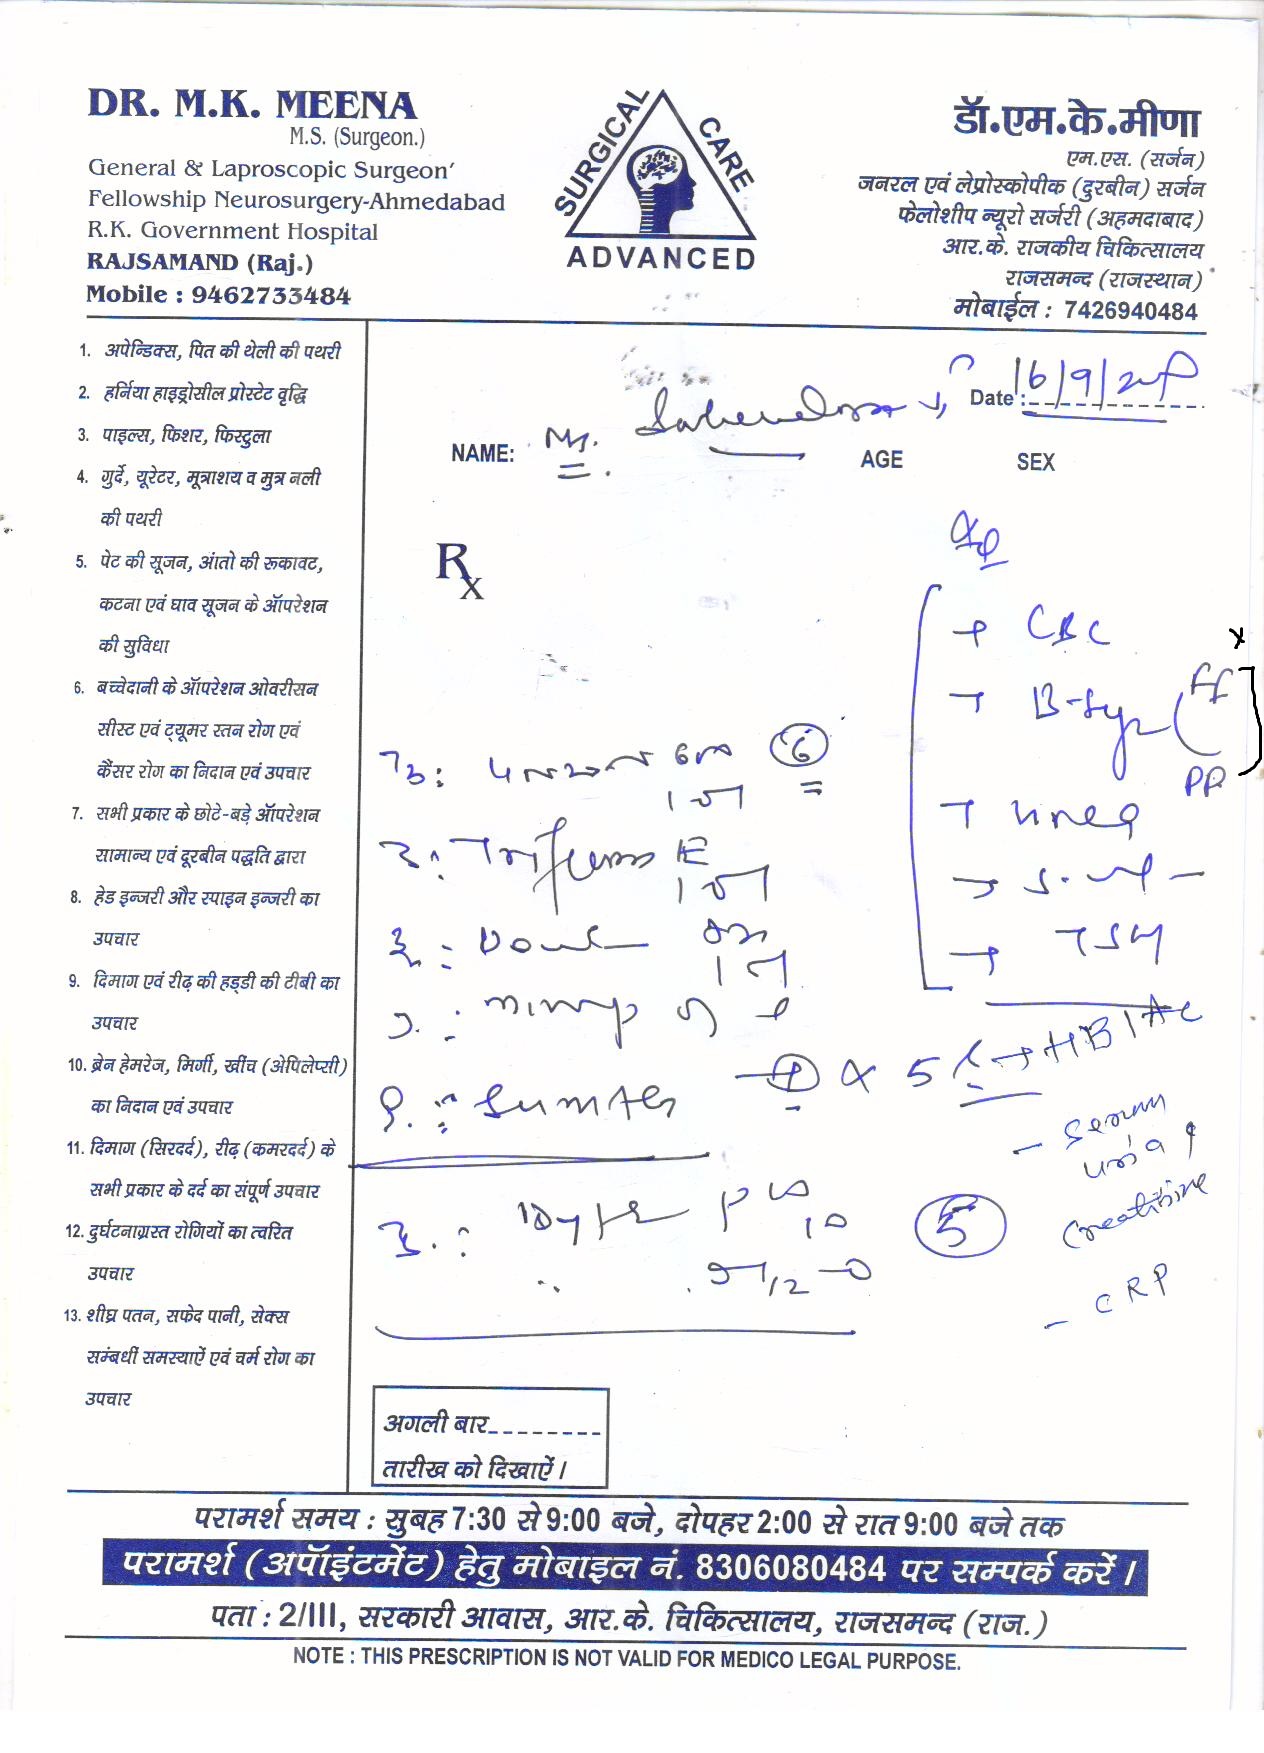 DR. M.K. MEENA
M.S. (Surgeon.)
General & Laproscopic Surgeon'
Fellowship Neurosurgery-Ahmedabad
R.K. Government Hospital
RAJSAMAND (Raj.)
Mobile : 9462733484
SURGICAL CARE
ADVANCED
डॉ.एम.के.मीणा
एम.एस. (सर्जन)
जनरल एवं लेप्रोस्कोपीक (दुरबीन) सर्जन
फेलोशीप न्यूरो सर्जरी (अहमदाबाद)
आर.के. राजकीय चिकित्सालय
राजसमन्द (राजस्थान)
मोबाईल : 7426940484
1. अपेन्डिक्स, पित की थेली की पथरी
2. हर्निया हाइड्रोसील प्रोस्टेट वृद्धि
3. पाइल्स, फिशर, फिस्टुला
4. गुर्दे, यूरेटर, मूत्राशय व मुत्र नली
की पथरी
5. पेट की सूजन, आंतो की रूकावट,
कटना एवं घाव सूजन के ऑपरेशन
की सुविधा
6. बच्चेदानी के ऑपरेशन ओवरीसन
सीस्ट एवं ट्यूमर स्तन रोग एवं
कैंसर रोग का निदान एवं उपचार
7. सभी प्रकार के छोटे-बड़े ऑपरेशन
सामान्य एवं दूरबीन पद्धति द्वारा
8. हेड इन्जरी और स्पाइन इन्जरी का
उपचार
9. दिमाग एवं रीढ़ की हड्डी की टीबी का
उपचार
10. ब्रेन हेमरेज, मिर्गी, खींच (अेपिलेप्सी)
का निदान एवं उपचार
11. दिमाग (सिरदर्द), रीढ़ (कमरदर्द) के
सभी प्रकार के दर्द का संपूर्ण उपचार
12. दुर्घटनाग्रस्त रोगियों का त्वरित
उपचार
13. शीघ्र पतन, सफेद पानी, सेक्स
सम्बंधीं समस्याऐं एवं चर्म रोग का
उपचार
Date : 16/9/
NAME: AGE SEX
Rx
CBC
PP
TSH
x 5
HB1AC
Serum
Creatinine
5
CRP
अगली बार
तारीख को दिखाऐं।
परामर्श समय : सुबह 7:30 से 9:00 बजे, दोपहर 2:00 से रात 9:00 बजे तक
परामर्श (अपॉइंटमेंट) हेतु मोबाइल नं. 8306080484 पर सम्पर्क करें।
पता : 2/III, सरकारी आवास, आर.के. चिकित्सालय, राजसमन्द (राज.)
NOTE : THIS PRESCRIPTION IS NOT VALID FOR MEDICO LEGAL PURPOSE.